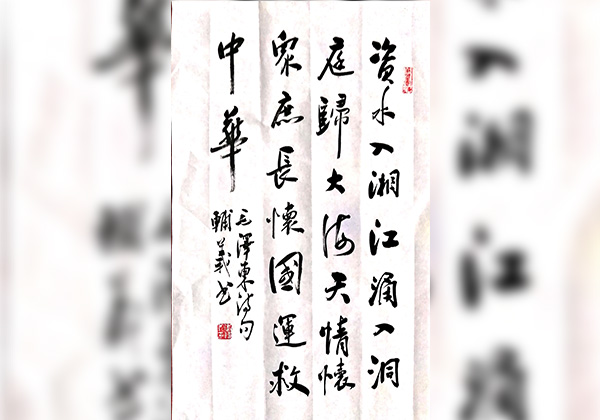 資水入湘江涌入洞
庭歸大海天情懷
眾庶長懷國運救
中華
毛澤東诗句
輔義书